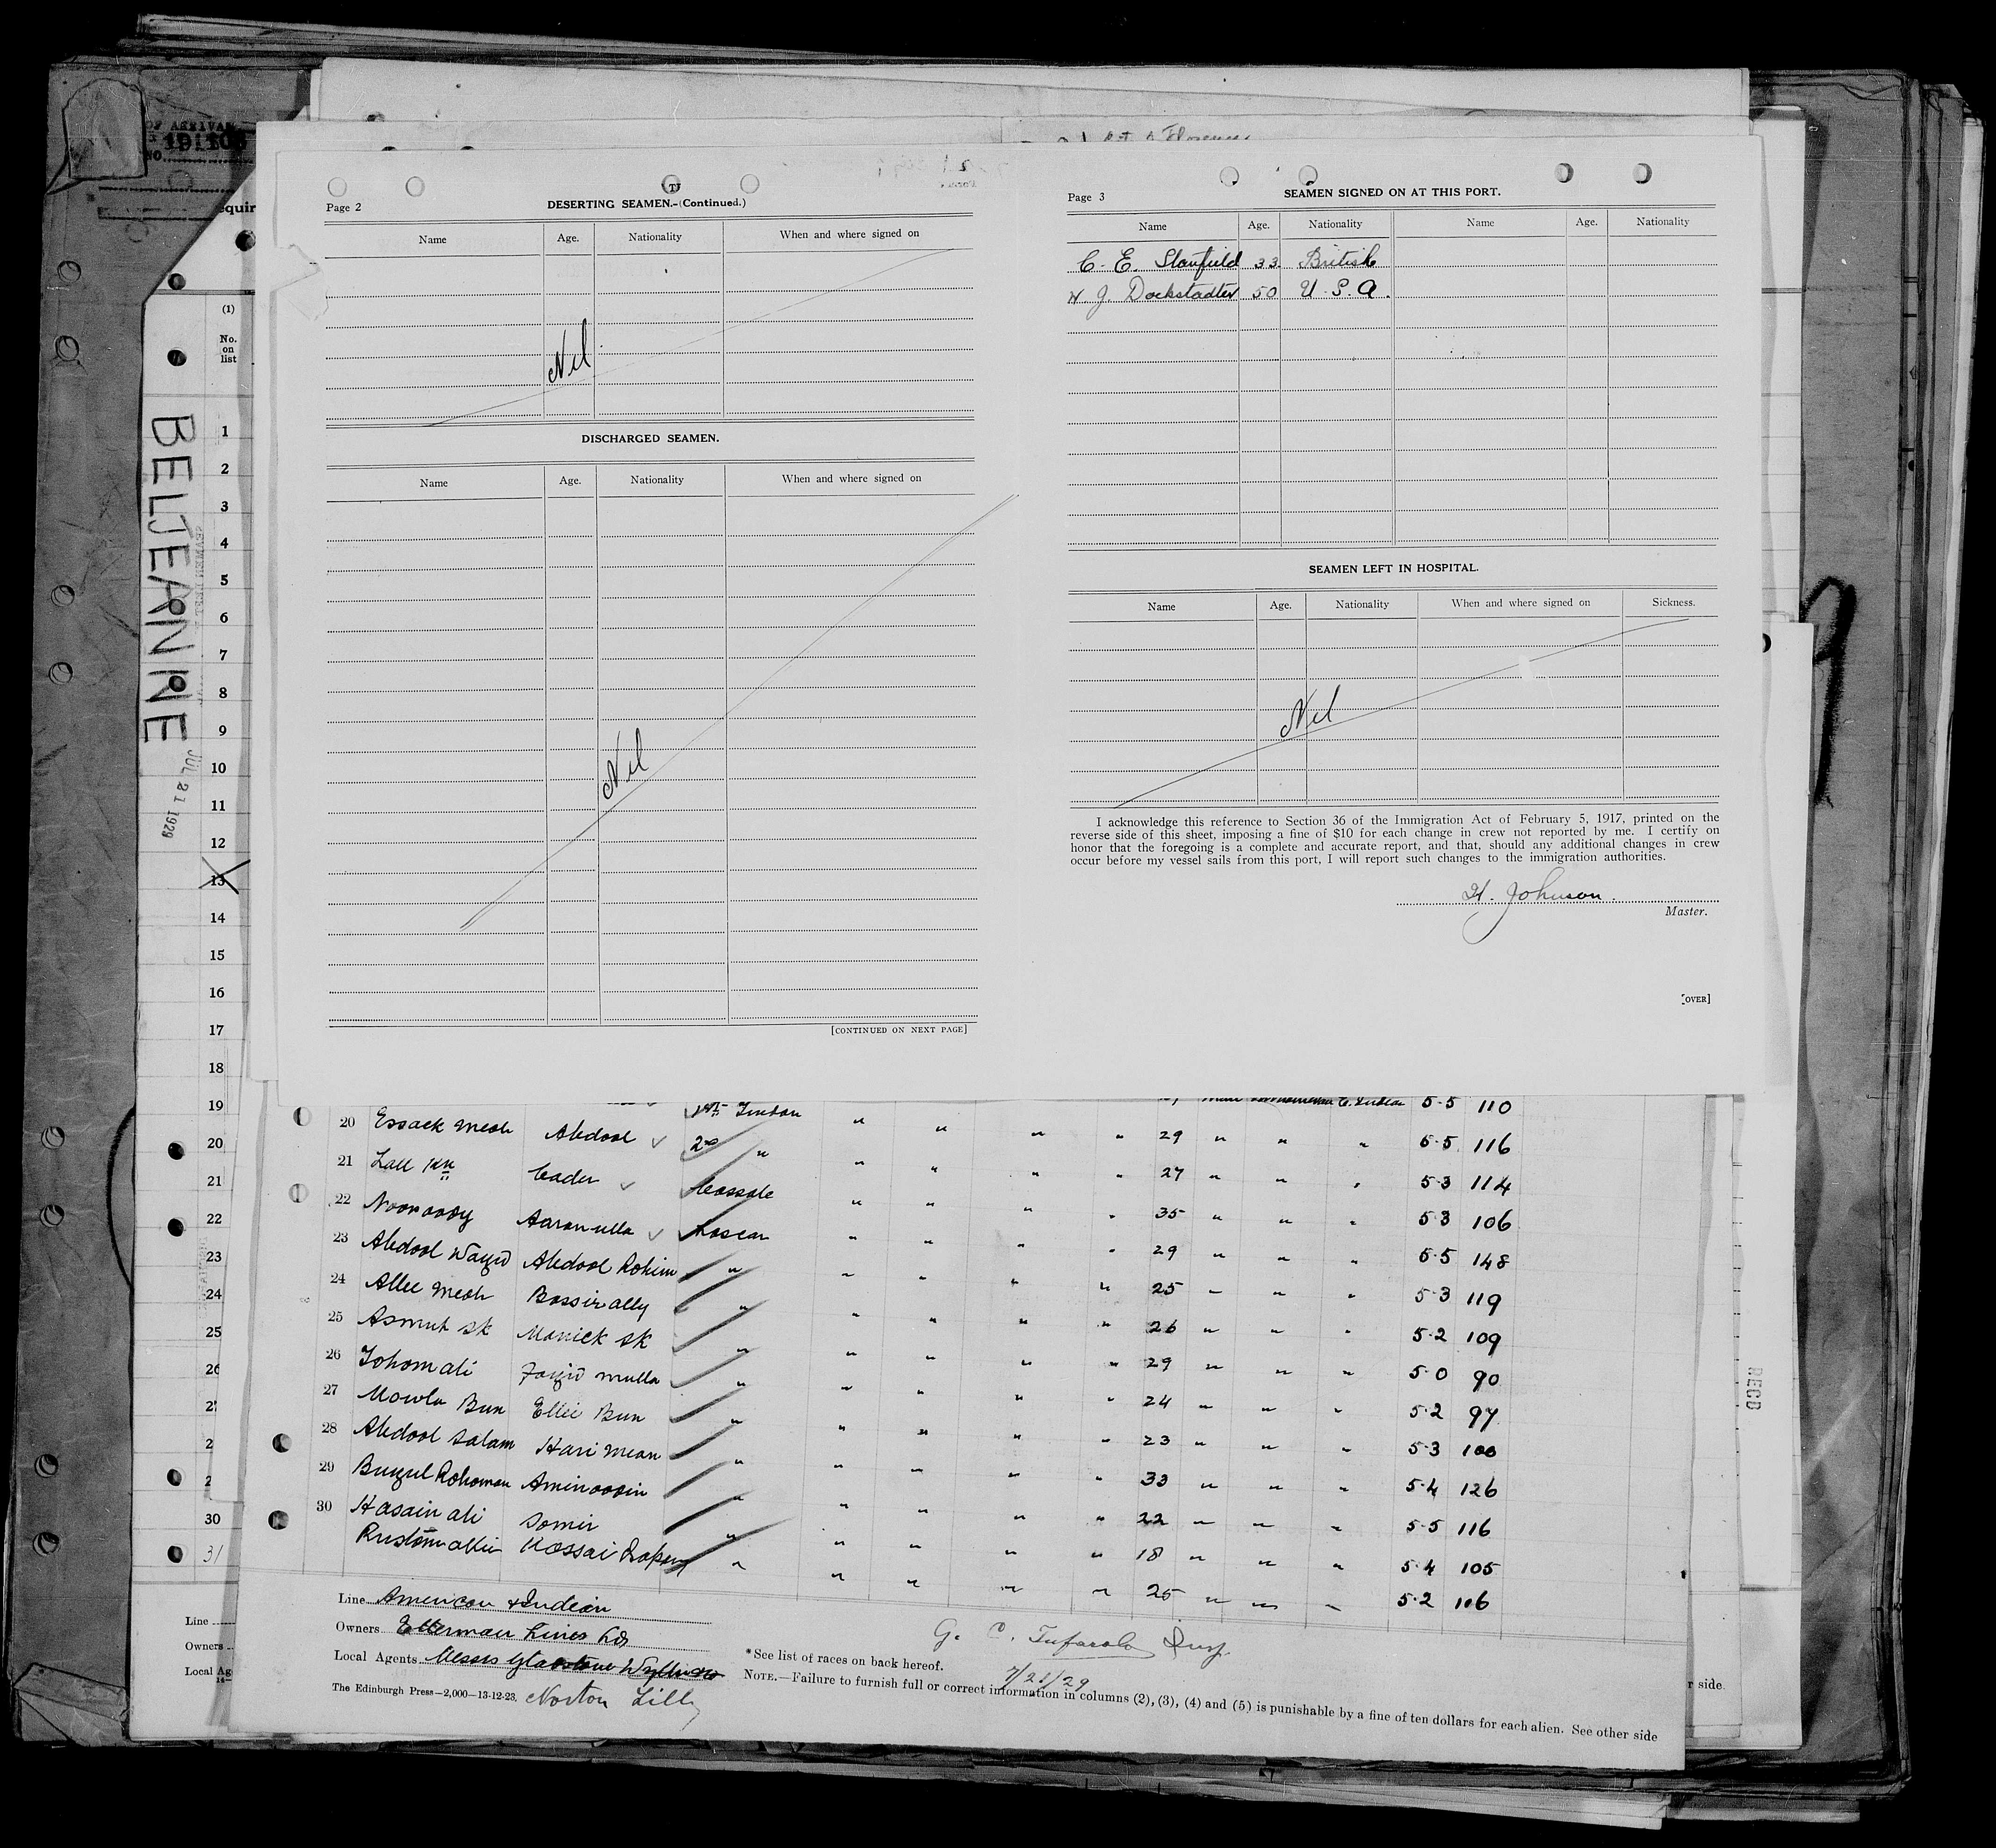 OF ARRIVAL
NO.
equir
(1)
No.
on
list
BELJEANNE
JUL 21 1929
1
2
3
4
5
6
7
8
9
10
11
12
13
14
15
16
17
18
19
20
21
22
23
24
25
26
2
2
2
30
31
Line
Owners
Local Ag
Page 2
DESERTING SEAMEN.-(Continued.)
Name Age. Nationality When and where signed on
Nil
DISCHARGED SEAMEN.
Name Age. Nationality When and where signed on
Nil
[CONTINUED ON NEXT PAGE]
Page 3
SEAMEN SIGNED ON AT THIS PORT.
Name Age. Nationality Name Age. Nationality
C. E. Stanfield 33 British
W J. Dockstadter 50 U.S.A.
SEAMEN LEFT IN HOSPITAL.
Name Age. Nationality When and where signed on Sickness.
Nil
I acknowledge this reference to Section 36 of the Immigration Act of February 5, 1917, printed on the
reverse side of this sheet, imposing a fine of $10 for each change in crew not reported by me. I certify on
honor that the foregoing is a complete and accurate report, and that, should any additional changes in crew
occur before my vessel sails from this port, I will report such changes to the immigration authorities.
H. Johnson.
Master.
[OVER]
1st Tindal 5-5 110
20 Essack Meah Abdool 2nd " " " " " 29 " " " 5-5 116
21 Lall Cader Cassab " " " " 27 " " " 5-3 114
22 Aaronulla Lascar " " " " 35 " " " 5-3 106
23 Abdool Wazid Abdool Rohim " " " " " 29 " " " 5-5 148
24 Allee Meah Bossirally " " " " " 25 " " " 5-3 119
25 Asmut Sk Manick Sk " " " " " 26 " " " 5-2 109
26 Tohomali Fazid Mulla " " " " " 29 " " " 5-0 90
27 Mowla Bun Ellei Bun " " " " " 24 " " " 5-2 97
28 Abdool Salam Hari Mean " " " " " 23 " " " 5-3 100
29 Buzul Rohoman Aminoodin " " " " 33 " " " 5-4 126
30 Hasain ali Somir " " " " " 22 " " " 5-5 116
" " " " " 18 " " " 5-4 105
" " " " 25 " " " 5-2 106
Line American & Indian
Owners Ellerman Lines Ld
Local Agents Messrs Gladstone Wyllie & Co
Norton Lilly
The Edinburgh Press—2,000—13-12-23.
G. C. Tufarolo Insp.
7/21/29
*See list of races on back hereof.
NOTE.—Failure to furnish full or correct information in columns (2), (3), (4) and (5) is punishable by a fine of ten dollars for each alien. See other side
r side.
RECD